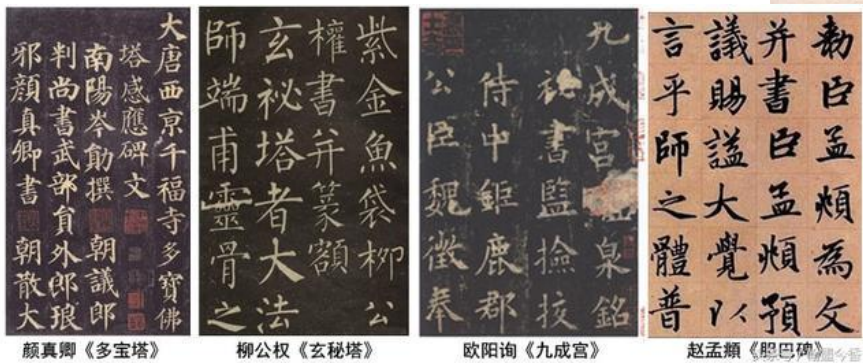 大唐西京千福寺多寶佛
塔感應碑文
南陽岑勛撰 朝議郎
判尚書武部員外郎琅
邪顏真卿書 朝散大
颜真卿《多宝塔》
紫金魚袋柳公
權書并篆額
玄祕塔者大法
師端甫靈骨之
柳公权《玄秘塔》
九成宮泉銘
秘書監撿挍
侍中鉅鹿郡
公臣魏徵奉
欧阳询《九成宫》
勑臣孟頫為文
并書臣孟頫預
議賜謚大覺以
言乎師之體普
赵孟頫《胆巴碑》